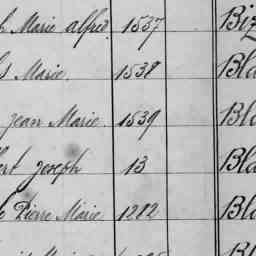 Marie Alfred 1537 Biz
Marie 1538 Bla
Jean Marie 1539 Bla
Joseph 13 Bla
Pierre Marie 1212 Bla